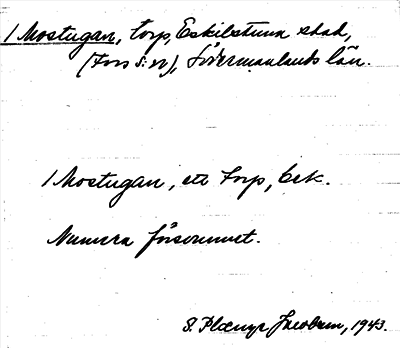 Mostugan, torp, Eskilstuna stad,
(Fors s:n), Södermanlands län.
Mostugan, ett torp, bek.
Numera försvunnet.
S. Plænge Jacobson, 1943.